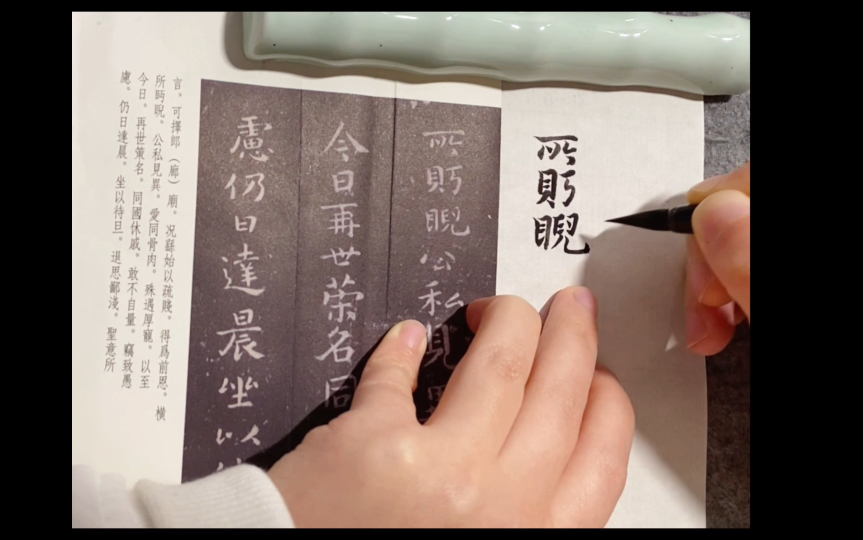 所眄睨
所眄睨公私見
今日再世榮名同
慮仍日達晨坐以
言。可擇郎（廊）廟。况繇始以疏賤。得爲前恩。橫
所眄睨。公私見異。愛同骨肉。殊遇厚寵。以至
今日。再世榮名。同國休戚。敢不自量。竊致愚
慮。仍日達晨。坐以待旦。退思鄙淺。聖意所